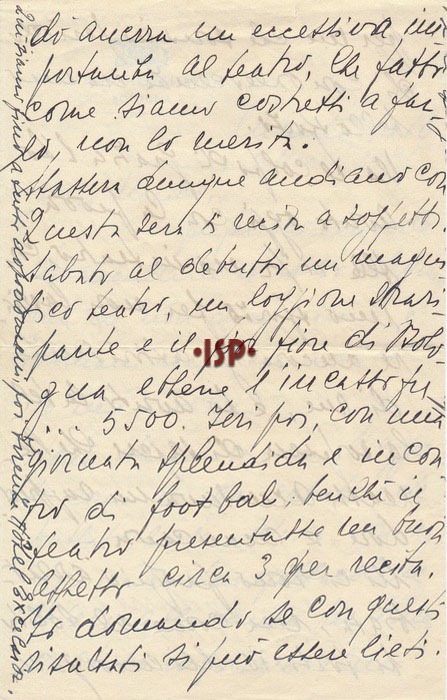 do ancora un eccessiva im
portanza al teatro, che fatto
come siamo costretti a far
lo, non lo merita.
Stasera dunque andiamo con
Questa sera si recita a soggetto.
Sabato al debutto un magni
fico teatro, un loggione strari
pante e il fior fiore di Bolo
gna ebbene l'incasso fu
... 5500. Ieri poi, con una
giornata splendida e incon
tro di football, benchè il
teatro presentasse un buon
aspetto circa 3 per recita.
Io domando se con questi
risultati si può essere lieti.
Qui siamo fino a tutto dopodomani poi Hotel Excelsior.
·ISP·